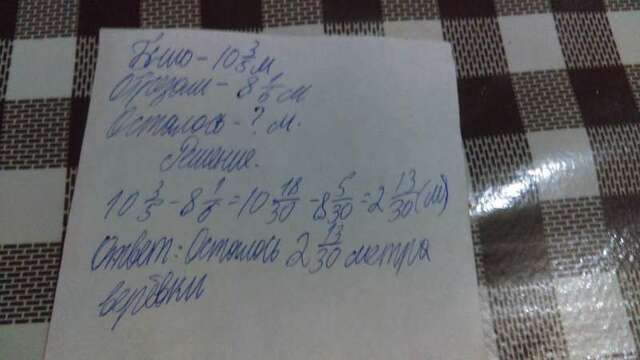 Было - 10 3/5 м
Отрезали - 8 1/6 м
Осталось - ? м.
Решение.
10 3/5 - 8 1/6 = 10 18/30 - 8 5/30 = 2 13/30 (м)
Ответ: Осталось 2 13/30 метра
верёвки